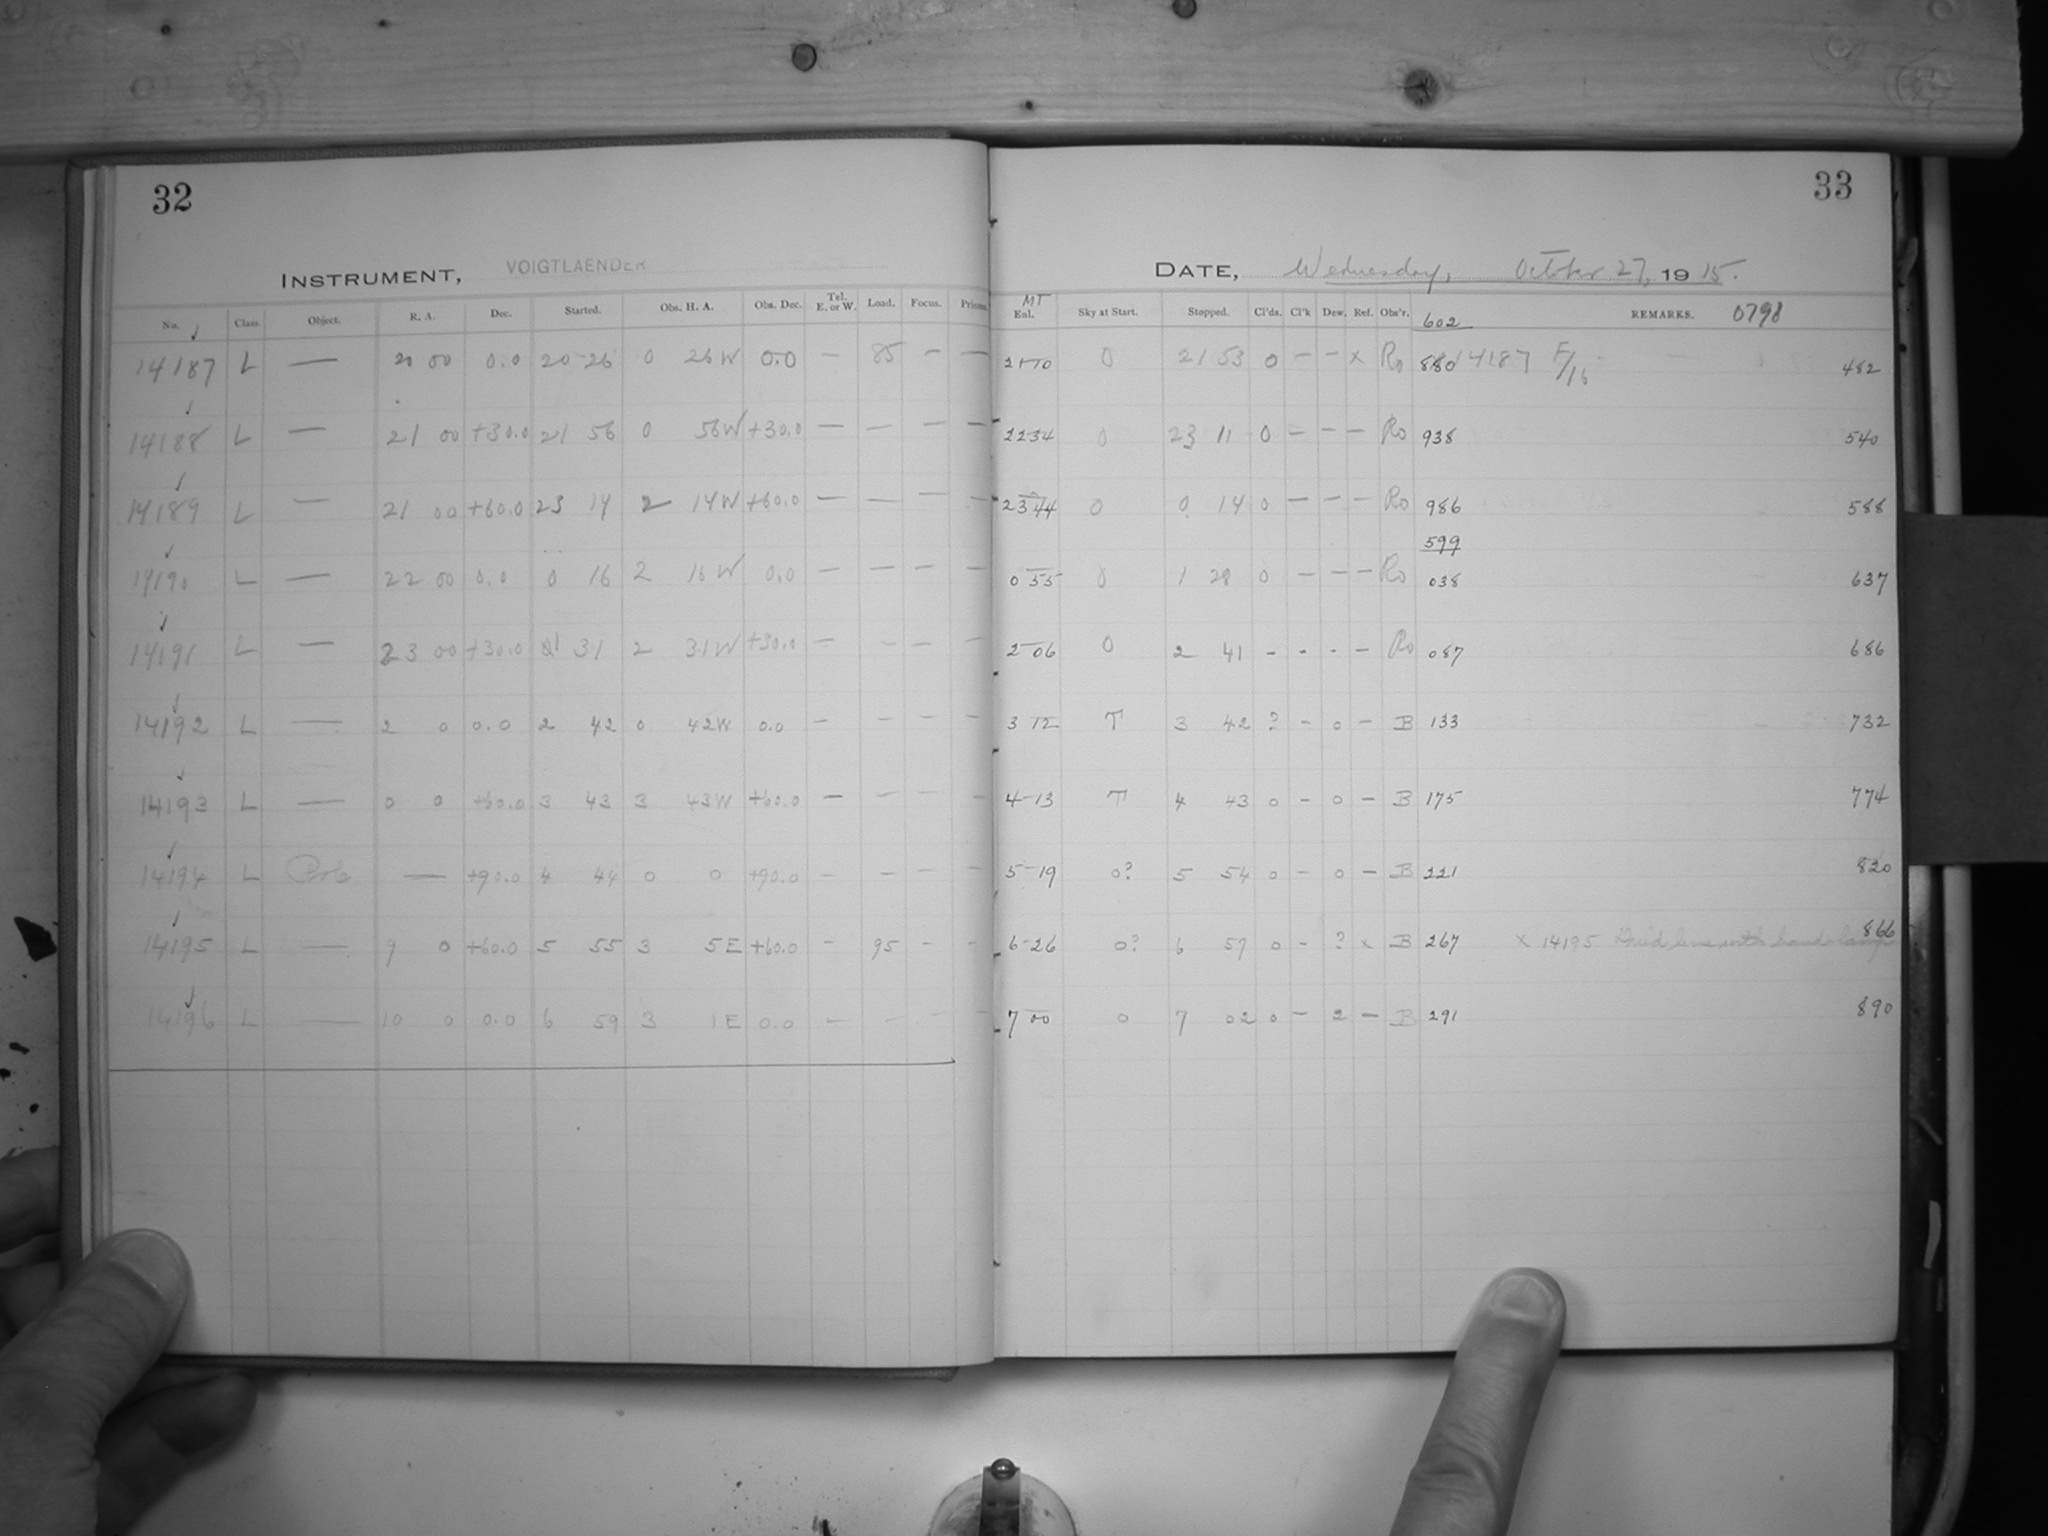 32
INSTRUMENT, VOIGTLAENDER
No. Class. Object. R. A. Dec. Started. Obs. H. A. Obs. Dec. Tel. E. or W. Load. Focus. Prism.
14187 L — 20 00 0.0 20 26 0 26 W 0.0 — 85 — —
14188 L — 21 00 +30.0 21 56 0 56 W +30.0 — — — —
14189 L — 21 00 +60.0 23 14 2 14 W +60.0 — — — —
14190 L — 22 00 0.0 0 16 2 16 W 0.0 — — — —
14191 L — 23 00 +30.0 31 2 31 W +30.0 — — — —
14192 L — 2 0 0.0 2 42 0 42 W 0.0 — — — —
14193 L — 0 0 +60.0 3 43 3 43 W +60.0 — — — —
14194 L Pole — +90.0 4 44 0 0 +90.0 — — — —
14195 L — 9 0 +60.0 5 55 3 5 E +60.0 — 95 — —
14196 L — 10 0 0.0 6 59 3 1 E 0.0 — — — —
33
DATE, Wednesday, October 27, 1915.
MT
Enl. Sky at Start. Stopped. Cl'ds. Cl'k Dew. Ref. Obs'r. 602 REMARKS. 0798
21 10 0 21 53 0 — — x Ro 880 14187 F/16 482
22 34 0 23 11 0 — — — Ro 938 540
23 44 0 0 14 0 — — — Ro 986 588
599
0 55 0 1 28 0 — — — Ro 038 637
2 06 0 2 41 - - - — Ro 087 686
3 12 T 3 42 ? — 0 — B 133 732
4 13 T 4 43 0 — 0 — B 175 774
5 19 0? 5 54 0 — 0 — B 221 820
6 26 0? 6 57 0 — ? x B 267 x 14195 Dried lens with hand lamp 866
7 00 0 7 02 0 — 2 — B 291 890